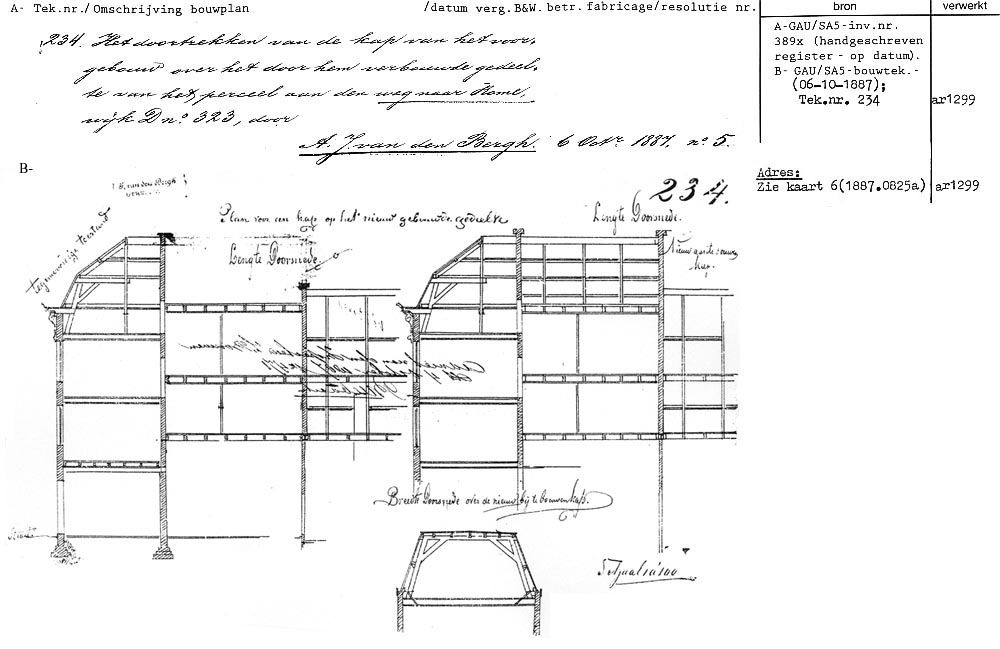 A- Tek.nr./Omschrijving bouwplan /datum verg.B&W. betr. fabricage/resolutie nr. bron verwerkt
234. Het doortrekken van de kap van het voor-
gebouw over het door hem verbouwde gedeel-
te van het perceel aan den weg naar Heme.
wijk D no. 323, door
A. J. van den Bergh. 6 Octr. 1887. no. 5.
A-GAU/SA5-inv.nr.
389x (handgeschreven
register - op datum).
B- GAU/SA5-bouwtek.-
(06-10-1887);
Tek.nr. 234 ar1299
Adres:
Zie kaart 6(1887.0825a) ar1299
B-
v. van den Bergh
234.
Plan voor een kap op het nieuw gebouwde gedeelte
Lengte Doorsnede.
Lengte Doorsnede.
tegenwoordige toestand
kap.
Breedte Doorsnede over de nieuw bij te bouwen kap.
Straat